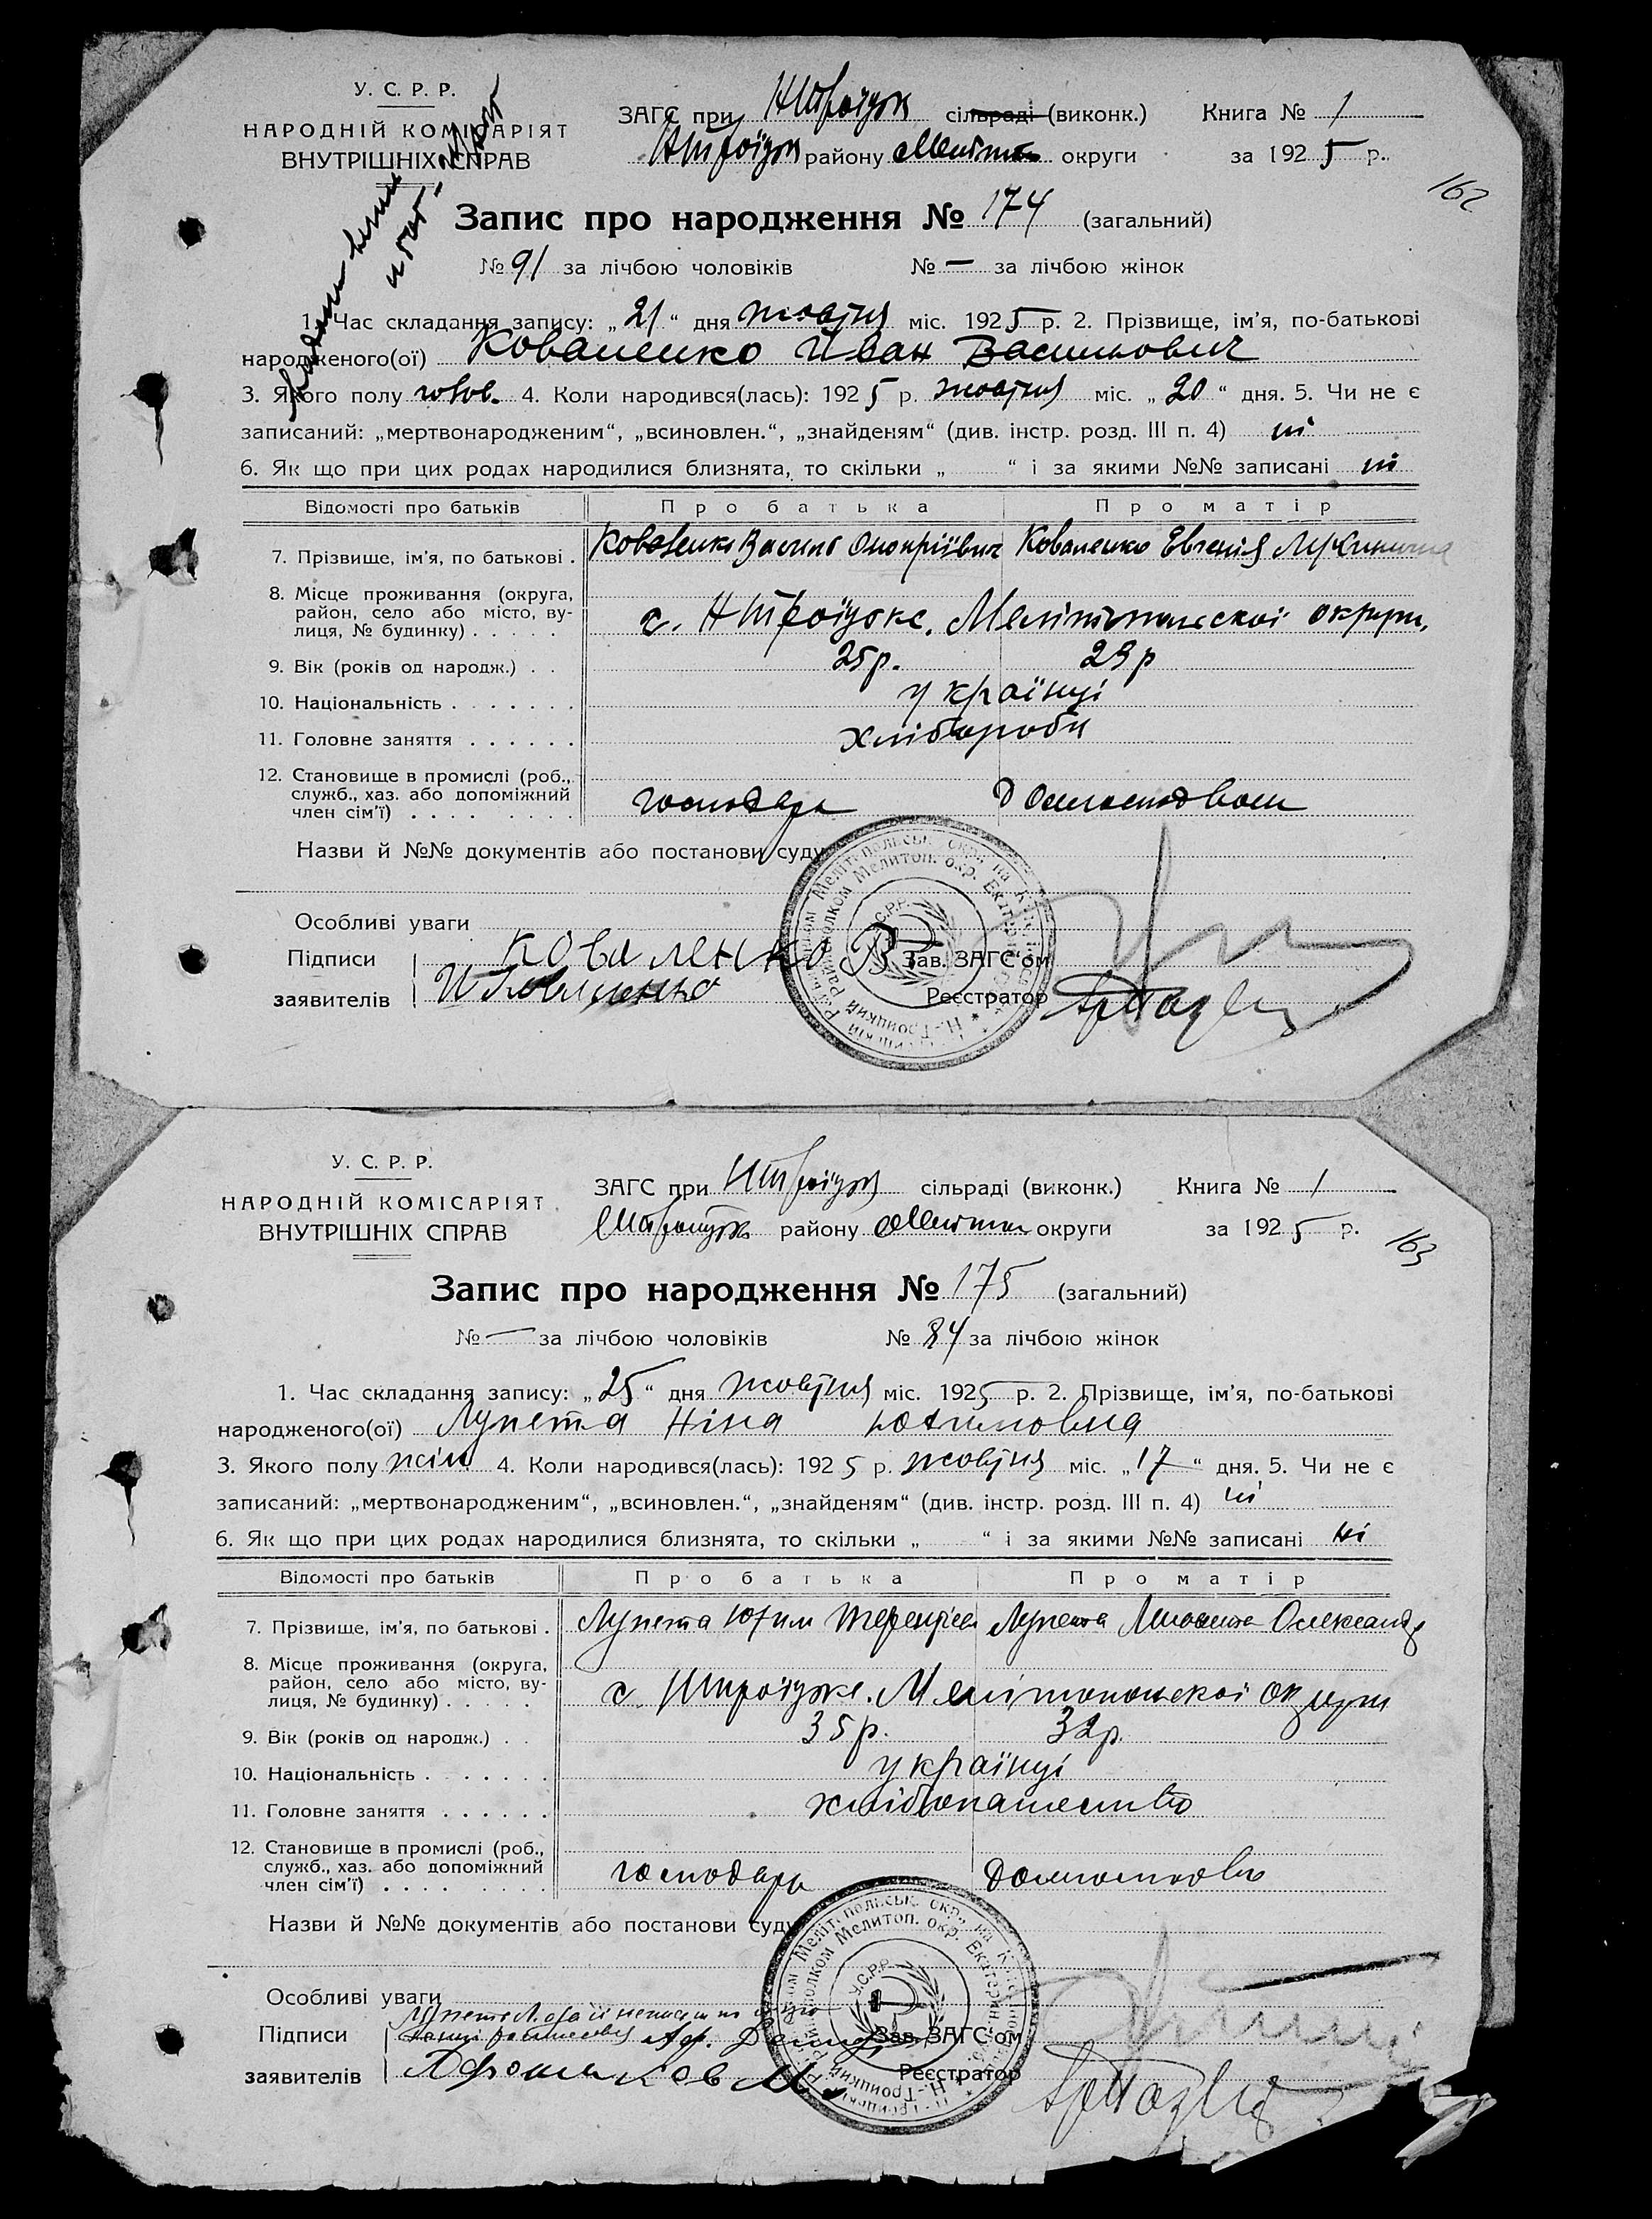 У. С. Р. Р.
НАРОДНІЙ КОМІСАРІЯТ
ВНУТРІШНІХ СПРАВ
ЗАГС при НТроїцьк сільраді (виконк.) Книга № 1
НТроїцьк району Меліт округи за 1925 р.
162
Запис про народження № 174 (загальний)
№ 91 за лічбою чоловіків № — за лічбою жінок
1. Час складання запису: „21“ дня жовтня міс. 1925 р. 2. Прізвище, ім'я, по-батькові
народженого(ої) Коваленко Иван Васильович
3. Якого полу чолов. 4. Коли народився(лась): 1925 р. жовтня міс. „20“ дня. 5. Чи не є
записаний: „мертвонародженим“, „всиновлен.“, „знайденям“ (див. інстр. розд. III п. 4) ні
6. Як що при цих родах народилися близнята, то скільки „ “ і за якими №№ записані ні
Відомості про батьків Про батька Про матір
7. Прізвище, ім'я, по батькові . Коваленко Василь Оноприївич Коваленко Евгенія
8. Місце проживання (округа,
район, село або місто, ву-
лиця, № будинку) . . . . . с. НТроїцьке, Мелітопольскої округи,
9. Вік (років од народж.) . . 25р. 23р
10. Національність . . . . . . . українці
11. Головне заняття . . . . . . хлібороби
12. Становище в промислі (роб.,
служб., хаз. або допоміжний
член сім'ї) . . . . . . . . господарь
Назви й №№ документів або постанови суду
Особливі уваги
Підписи Коваленко В Зав. ЗАГС'ом
заявителів Коваленко Реєстратор
У. С. Р. Р.
НАРОДНІЙ КОМІСАРІЯТ
ВНУТРІШНІХ СПРАВ
ЗАГС при НТроїцьк сільраді (виконк.) Книга № 1
району Меліт округи за 1925 р.
163
Запис про народження № 175 (загальний)
№ — за лічбою чоловіків № 84 за лічбою жінок
1. Час складання запису: „25“ дня жовтня міс. 1925 р. 2. Прізвище, ім'я, по-батькові
народженого(ої) Лупета Ніна Юхимовна
3. Якого полу жін 4. Коли народився(лась): 1925 р. жовтня міс. „17“ дня. 5. Чи не є
записаний: „мертвонародженим“, „всиновлен.“, „знайденям“ (див. інстр. розд. III п. 4) ні
6. Як що при цих родах народилися близнята, то скільки „ “ і за якими №№ записані ні
Відомості про батьків Про батька Про матір
7. Прізвище, ім'я, по батькові . Лупета Юхим Терентіев Лупета Олександр
8. Місце проживання (округа,
район, село або місто, ву-
лиця, № будинку) . . . . . с. НТроїцьке. Мелітопольскої округи
9. Вік (років од народж.) . . 35р. 32р.
10. Національність . . . . . . . українці
11. Головне заняття . . . . . . хлібопашество
12. Становище в промислі (роб.,
служб., хаз. або допоміжний
член сім'ї) . . . . . . . . господарь
Назви й №№ документів або постанови суду
Особливі уваги
Підписи Зав. ЗАГС'ом
заявителів Реєстратор